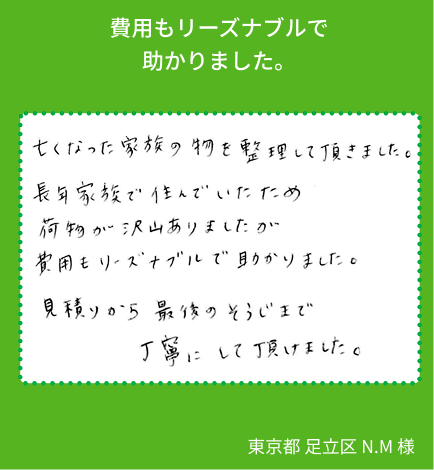 費用もリーズナブルで
助かりました。
亡くなった家族の物を整理して頂きました。
長年家族で住んでいたため
荷物が沢山ありましたが
費用もリーズナブルで助かりました。
見積りから最後のそうじまで
丁寧にして頂けました。
東京都 足立区 N.M 様